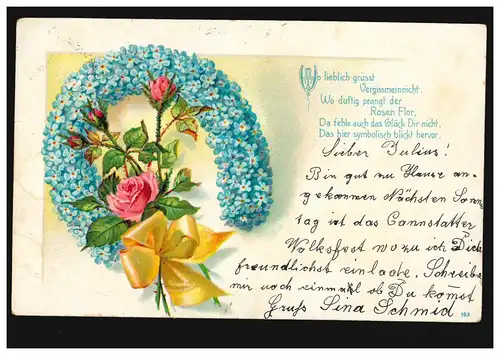 Wo lieblich grüsst
Vergissmeinnicht.
Wo duftig prangt der
Rosen Flor,
Da fehle auch das Glück Dir nicht,
Das hier symbolisch blickt hervor.
Lieber Julius!
Bin gut zu Hause an-
gekommen Nächsten Sonn
tag ist das Cannstatter
Volksfest wozu ich Dich
freundlichst einlade. Schreibe
mir noch einmahl ob Du komst
Gruß Lina Schmid
163